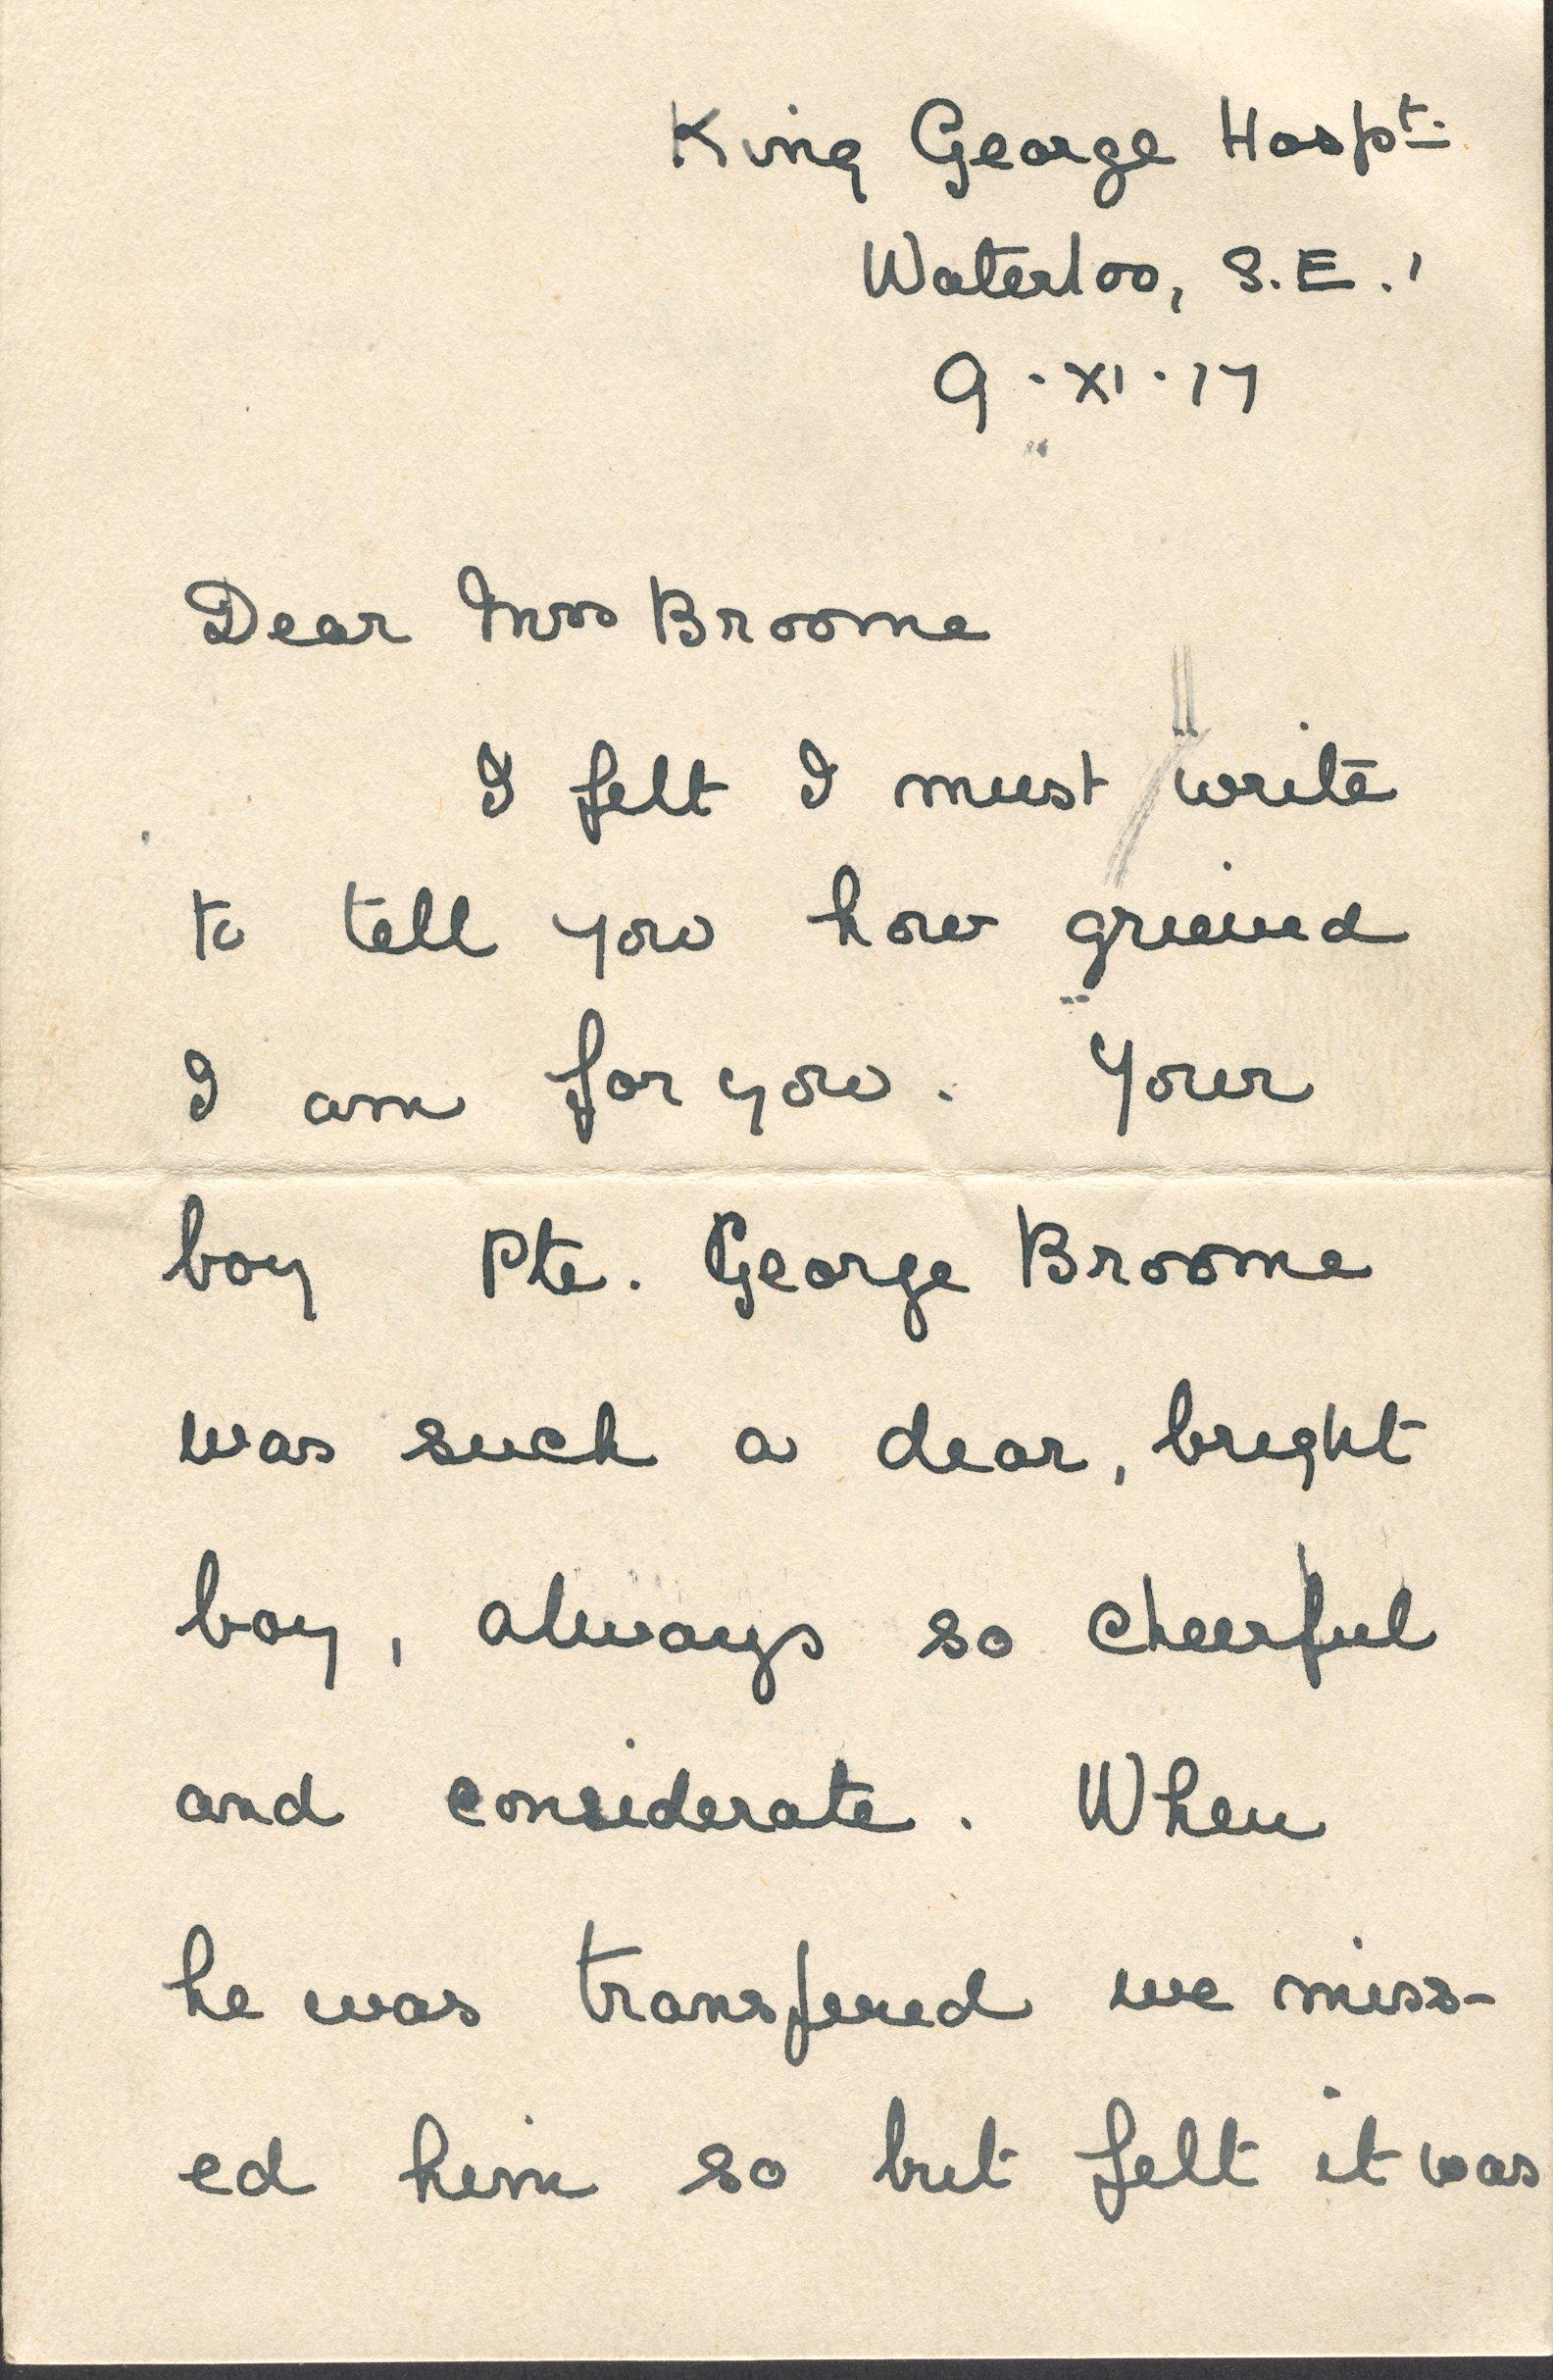 King George Hospt.
Waterloo, S.E.1
9.XI.17
Dear Mrs Broome
I felt I must write
to tell you how grieved
I am for you. Your
boy Pte. George Broome
was such a dear, bright
boy, always so cheerful
and considerate. When
he was transfered we miss-
ed him so but felt it was